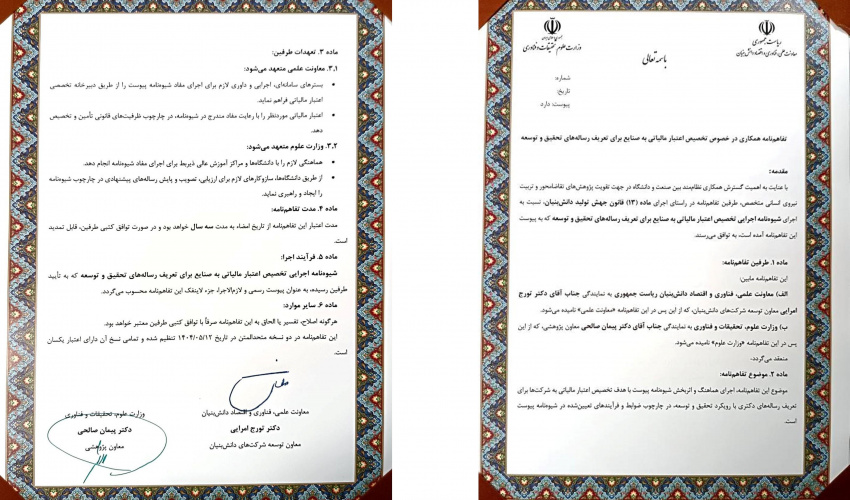 ریاست جمهوری
معاونت علمی، فناوری و اقتصاد دانش‌بنیان
جمهوری اسلامی ایران
وزارت علوم، تحقیقات و فناوری
باسمه تعالی
شماره:
تاریخ:
پیوست: دارد
تفاهم‌نامه همکاری در خصوص تخصیص اعتبار مالیاتی به صنایع برای تعریف رساله‌های تحقیق و توسعه
مقدمه:
با عنایت به اهمیت گسترش همکاری نظام‌مند بین صنعت و دانشگاه در جهت تقویت پژوهش‌های تقاضامحور و تربیت
نیروی انسانی متخصص، طرفین تفاهم‌نامه در راستای اجرای ماده (۱۳) قانون جهش تولید دانش‌بنیان، نسبت به
اجرای شیوه‌نامه اجرایی تخصیص اعتبار مالیاتی به صنایع برای تعریف رساله‌های تحقیق و توسعه که به پیوست
این تفاهم‌نامه آمده است، به توافق می‌رسند.
ماده ۱. طرفین تفاهم‌نامه:
این تفاهم‌نامه مابین:
الف) معاونت علمی، فناوری و اقتصاد دانش‌بنیان ریاست جمهوری به نمایندگی جناب آقای دکتر تورج
امرایی معاون توسعه شرکت‌های دانش‌بنیان، که از این پس در این تفاهم‌نامه «معاونت علمی» نامیده می‌شود.
ب) وزارت علوم، تحقیقات و فناوری به نمایندگی جناب آقای دکتر پیمان صالحی معاون پژوهشی، که از این
پس در این تفاهم‌نامه «وزارت علوم» نامیده می‌شود.
منعقد می‌گردد.
ماده ۲. موضوع تفاهم‌نامه:
موضوع این تفاهم‌نامه، اجرای هماهنگ و اثربخش شیوه‌نامه پیوست با هدف تخصیص اعتبار مالیاتی به شرکت‌ها برای
تعریف رساله‌های دکتری با رویکرد تحقیق و توسعه، در چارچوب ضوابط و فرآیندهای تعیین‌شده در شیوه‌نامه پیوست
است.
ماده ۳. تعهدات طرفین:
۳.۱. معاونت علمی متعهد می‌شود:
• بسترهای سامانه‌ای، اجرایی و داوری لازم برای اجرای مفاد شیوه‌نامه پیوست را از طریق دبیرخانه تخصصی
اعتبار مالیاتی فراهم نماید.
• اعتبار مالیاتی موردنظر را با رعایت مفاد مندرج در شیوه‌نامه، در چارچوب ظرفیت‌های قانونی تأمین و تخصیص
دهد.
۳.۲. وزارت علوم متعهد می‌شود:
• هماهنگی لازم را با دانشگاه‌ها و مراکز آموزش عالی ذیربط برای اجرای مفاد شیوه‌نامه انجام دهد.
• از طریق دانشگاه‌ها، سازوکارهای لازم برای ارزیابی، تصویب و پایش رساله‌های پیشنهادی در چارچوب شیوه‌نامه
را ایجاد و راهبری نماید.
ماده ۴. مدت تفاهم‌نامه:
مدت اعتبار این تفاهم‌نامه از تاریخ امضاء به مدت سه سال خواهد بود و در صورت توافق کتبی طرفین، قابل تمدید
است.
ماده ۵. فرآیند اجرا:
شیوه‌نامه اجرایی تخصیص اعتبار مالیاتی به صنایع برای تعریف رساله‌های تحقیق و توسعه که به تأیید
طرفین رسیده، به عنوان پیوست رسمی و لازم‌الاجرا، جزء لاینفک این تفاهم‌نامه محسوب می‌گردد.
ماده ۶. سایر موارد:
هرگونه اصلاح، تفسیر یا الحاق به این تفاهم‌نامه صرفاً با توافق کتبی طرفین معتبر خواهد بود.
این تفاهم‌نامه در دو نسخه متحدالمتن در تاریخ ۱۴۰۴/۰۵/۱۲ تنظیم شده و تمامی نسخ آن دارای اعتبار یکسان
است.
معاونت علمی، فناوری و اقتصاد دانش‌بنیان
دکتر تورج امرایی
معاون توسعه شرکت‌های دانش‌بنیان
وزارت علوم، تحقیقات و فناوری
دکتر پیمان صالحی
معاون پژوهشی